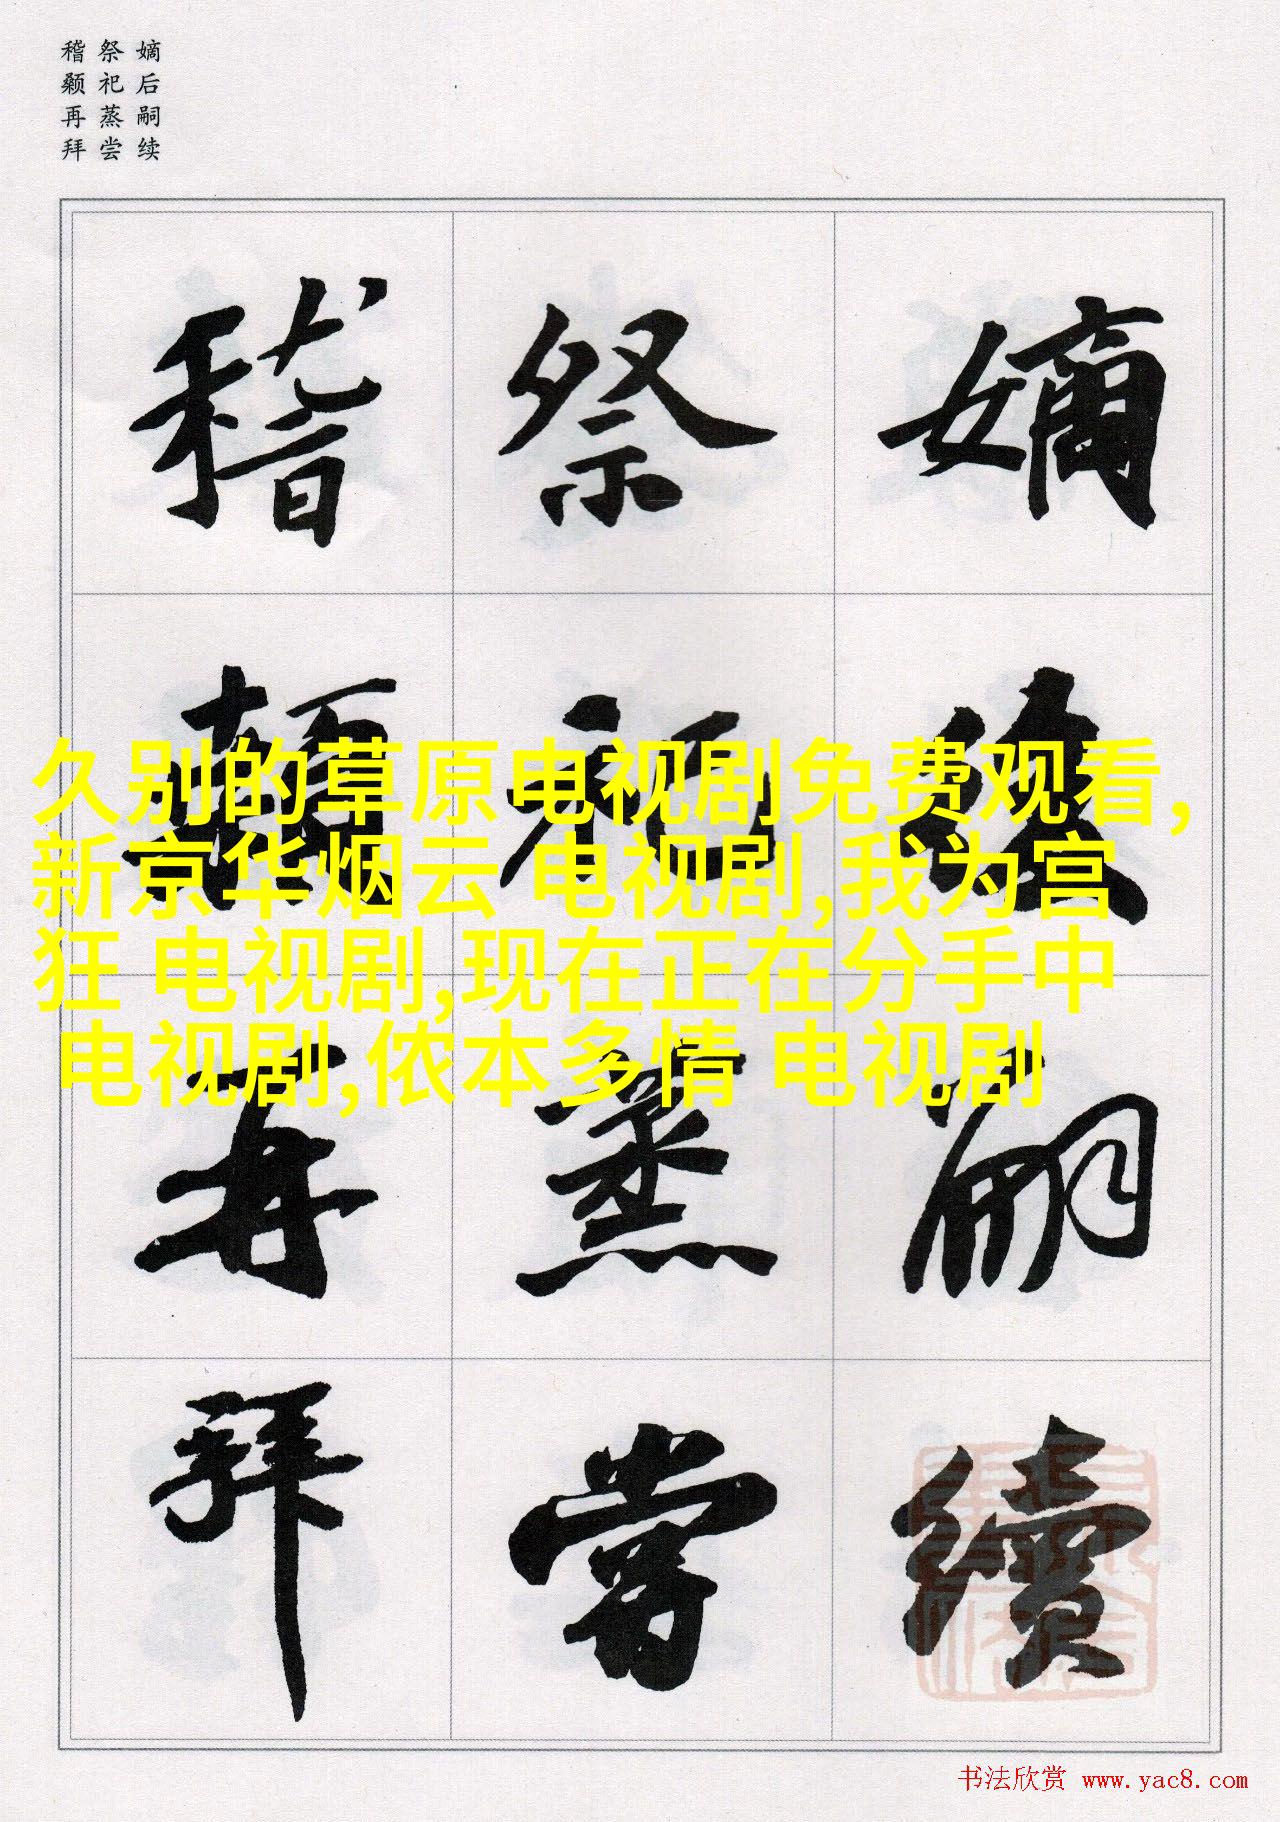 嫡后嗣续
祭祀蒸尝
稽颡再拜
嫡後嗣續
祭祀蒸嘗
稽顙再拜
久别的草原电视剧免费观看,
新京华烟云 电视剧,我为宫
狂 电视剧,现在正在分手中
电视剧,侬本多情 电视剧
书法欣赏 www.yac8.com